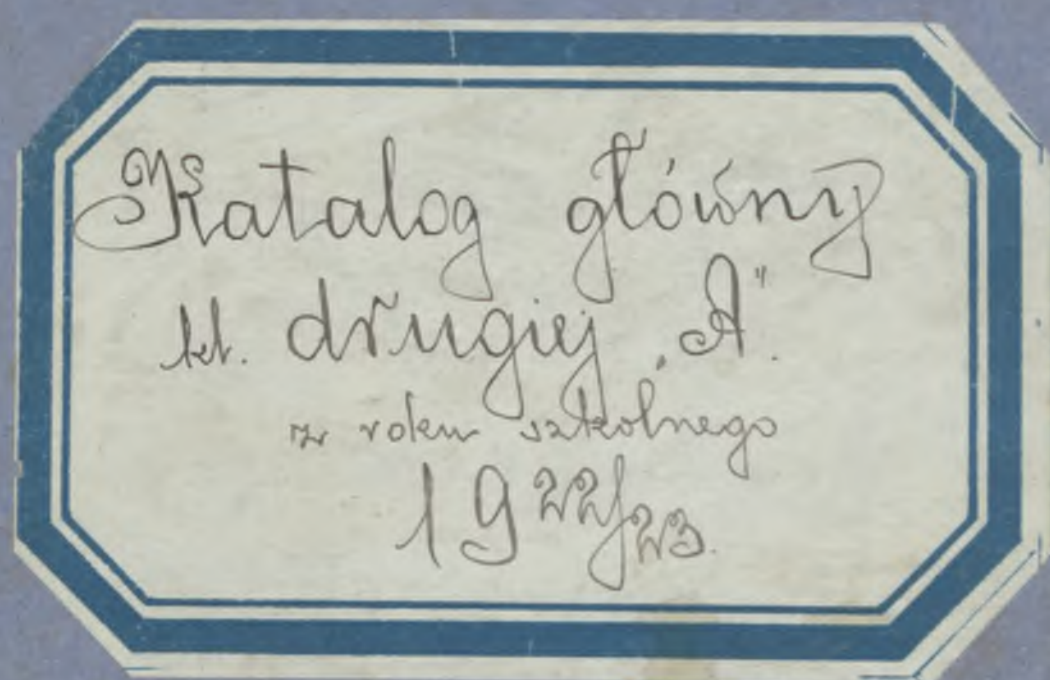 Katalog główny
kl. drugiej „A”.
z roku szkolnego
1922/23.